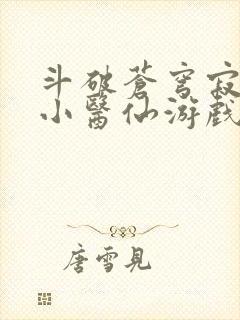 斗破蒼穹寂
小醫仙游戲
唐雪見